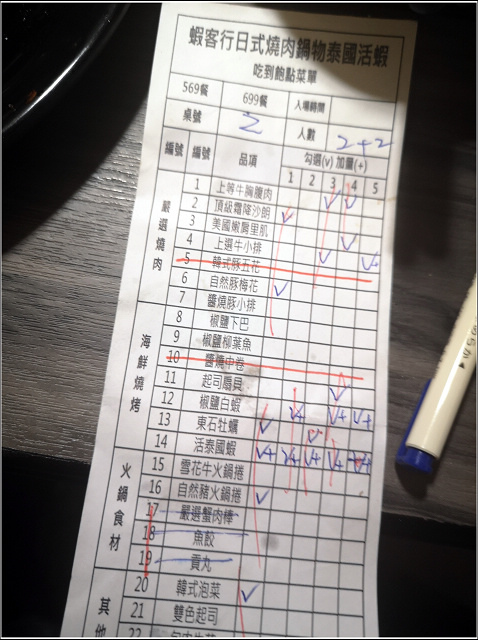 蝦客行日式燒肉鍋物泰國活蝦
吃到飽點菜單
569餐 699餐 入場時間
桌號 2 人數 2+2
編號 編號 品項 勾選(v) 加量(+)
1 2 3 4 5
嚴選燒肉
1 上等牛胸腹肉
2 頂級霜降沙朗
3 美國嫩肩里肌
4 上選牛小排
5 韓式豚五花
6 自然豚梅花
7 醬燒豚小排
海鮮燒烤
8 椒鹽下巴
9 椒鹽柳葉魚
10 醬燒中卷
11 起司扇貝
12 椒鹽白蝦
13 東石牡蠣
14 活泰國蝦
火鍋食材
15 雪花牛火鍋捲
16 自然豬火鍋捲
17 嚴選蟹肉棒
18 魚餃
19 貢丸
其他
20 韓式泡菜
21 雙色起司
22